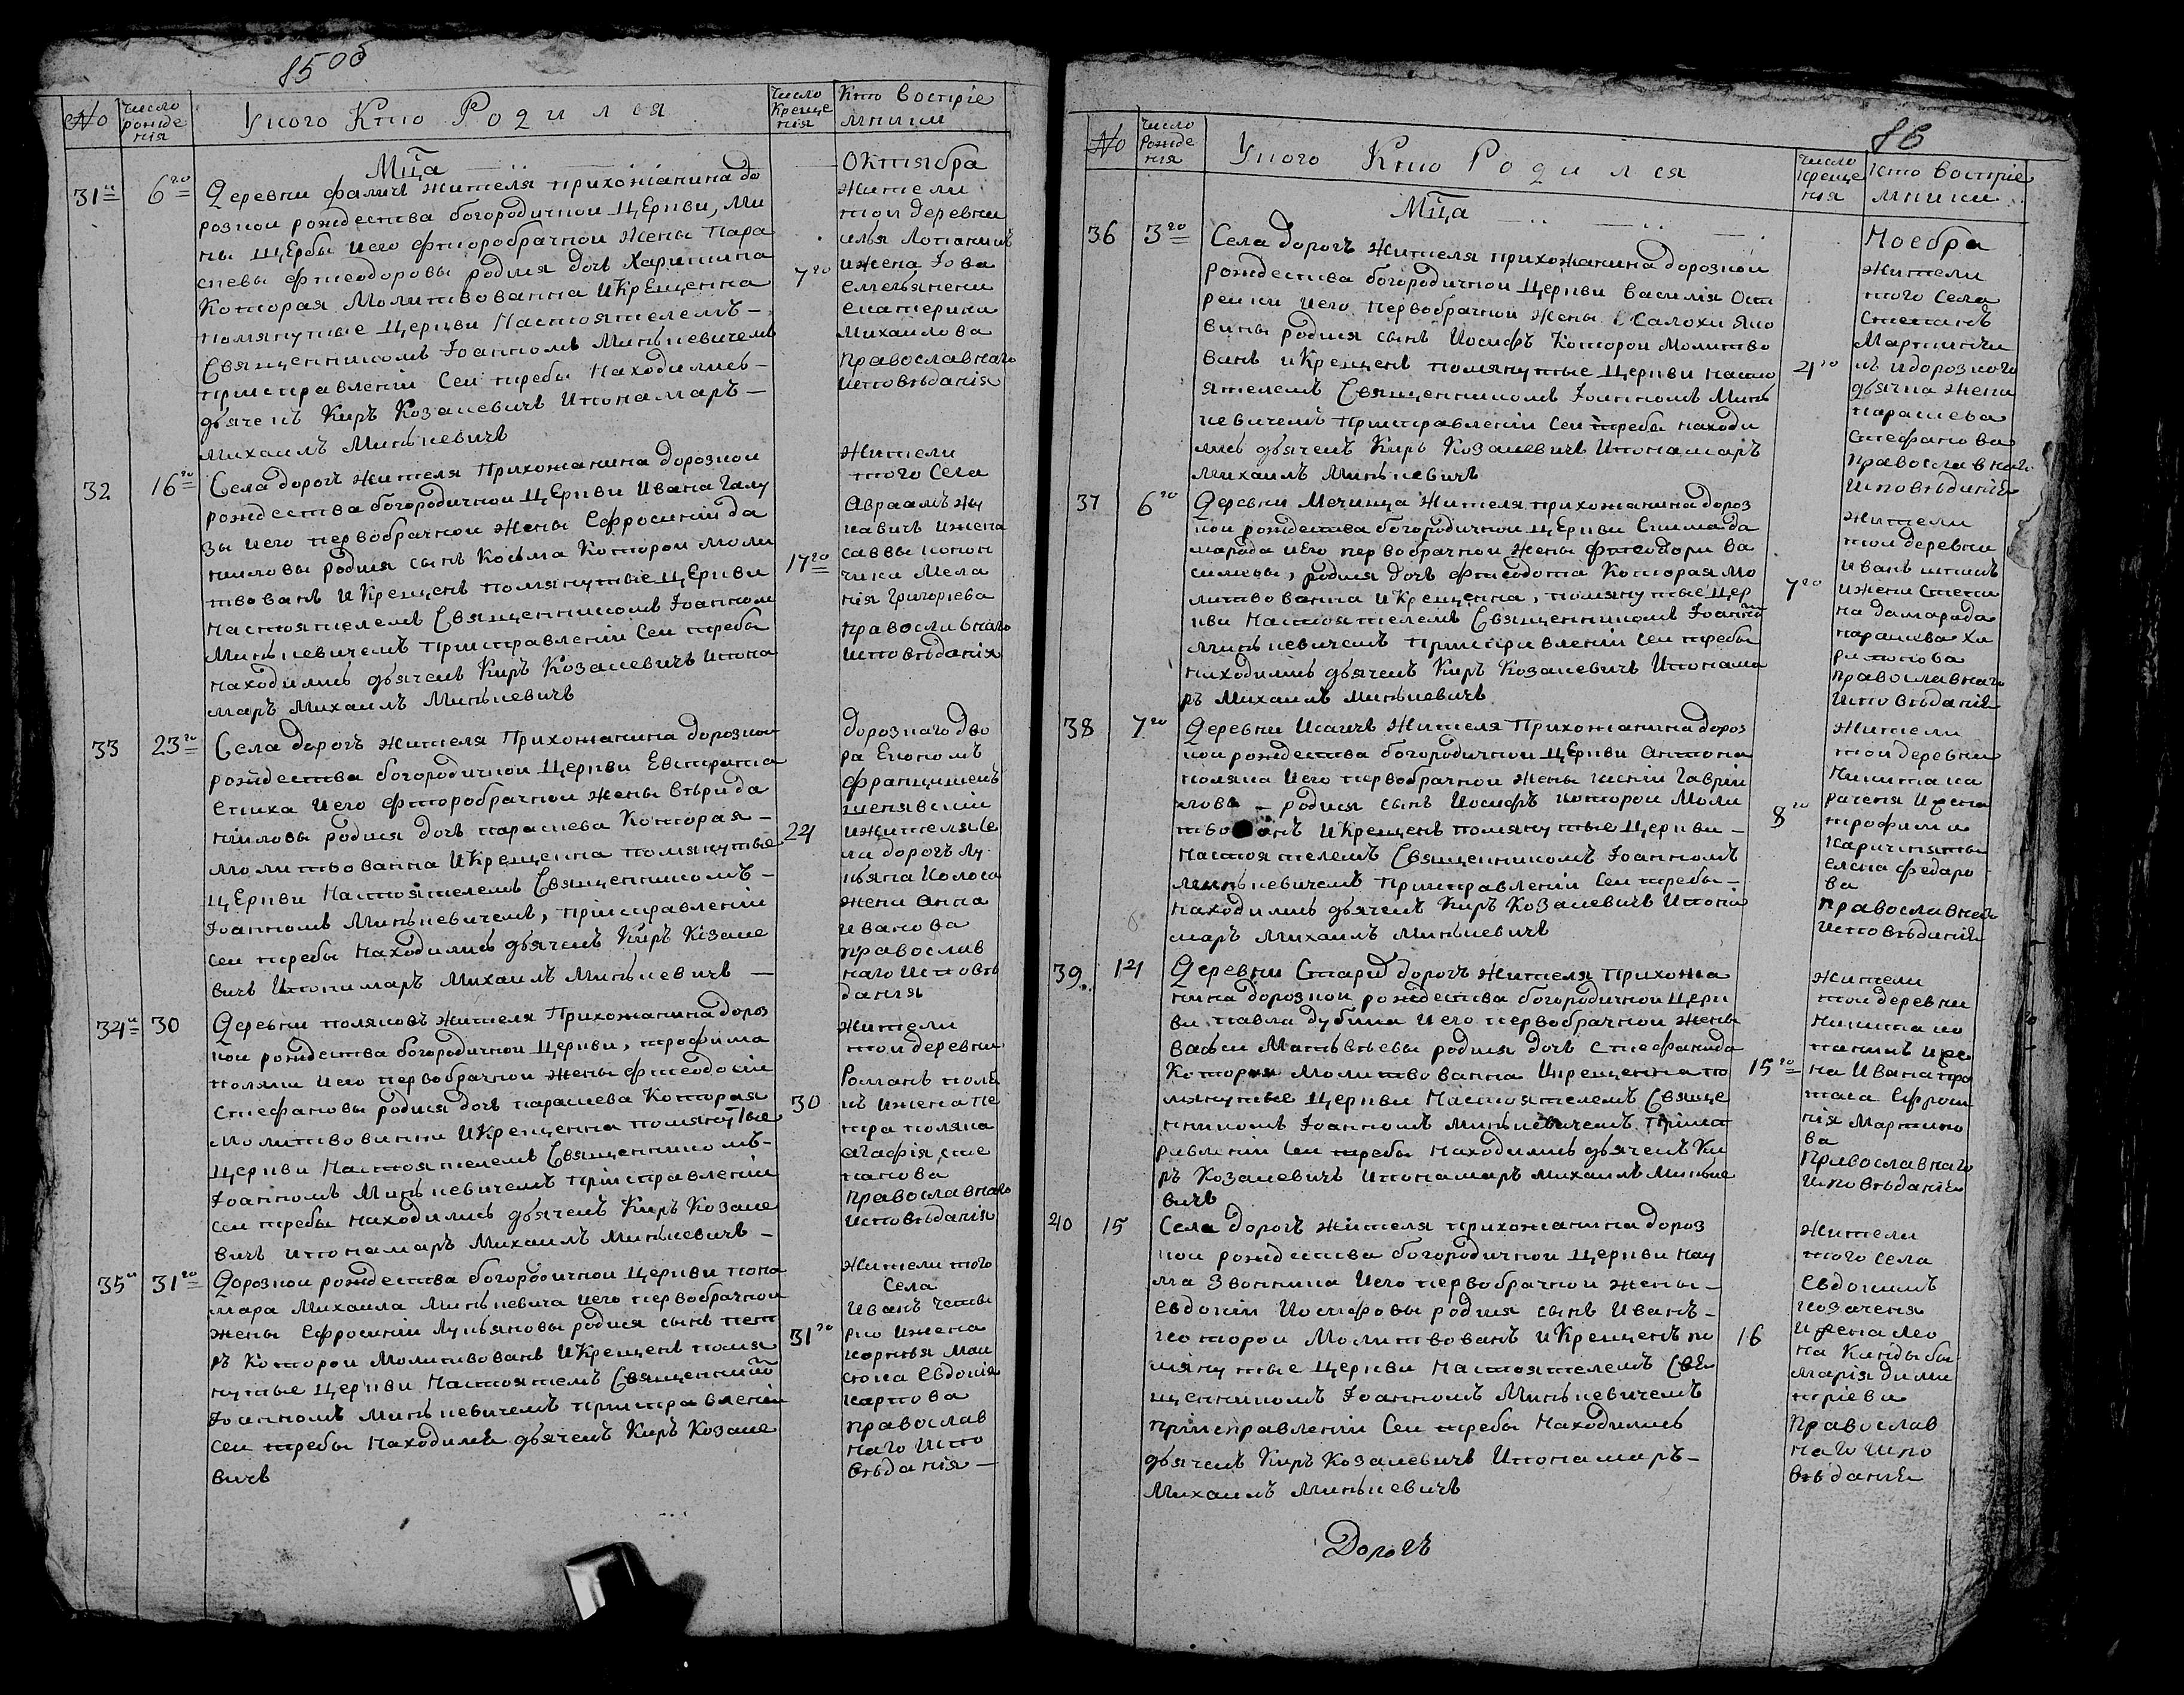 85 об
№
Число рожде нія
Укого Кто Родился
Число Креще нія
Кто воспріе мники
Мца
Октября
31
6го
Деревни фаличъ жителя прихожанина до
рознои рожdества богородичнои Церкви, Ми
ны Щербы иего фторобрачнои жены Пара
скевы Фтеодоровы родися дочъ Харитина
Которая Молитвованна иКрещенна
помянутые Церкви Настоятелемъ -
Священникомъ Іоанномъ Минькевичемъ
приисправленіи Сеи требы Находились -
дьячекъ Киръ Козакевичъ Ипонамаръ -
михаилъ Минькевичъ
7го
жители
тои деревни
илья
ижена Іова
екатерина
михаилова
православнаго
исповѣданія
32
16го
Села дорогъ жителя Прихожанина дорознои
рождества богородичнои Церкви Ивана Галу
зы иего первобрачнои жены Ефросиніи да
ниловы родися сынъ Косьма Которои моли
твованъ иКрещенъ помянутые Церкви
настоятелемъ Священникомъ Іоанном
Минькевичемъ приисправленіи Сеи требы
находились дьячекъ Киръ Козакевичъ Ипона
маръ Михаилъ Минькевичъ
17го
жители
того Села
Авраамъ Жу
кавичъ ижена
саввы
чика Мела
нія Григоріева
православнаго
исповѣданія
33
23го
Села дорогъ жителя Прихожанина дорознои
рождества богородичнои Церкви Евстратіа
иего фторобрачнои жены Вѣры да
ниловы родися дочъ параскева Которая -
молитвованна иКрещенна помянутые
Церкви Настоятелемъ Священникомъ -
Іоанномъ Минькевичемъ, приисправленіи
сеи требы находились дьячекъ Киръ Козаке
вичъ Ипонамаръ Михаилъ Минькевичъ -
24
дорознаго дво
ра Економъ
францишекъ
ижителя Се
ла дорогъ лу
кьяна Колоса
жена Анна
иванова
православ
наго исповѣ
данія
34
30
Деревни поляковъ жителя Прихожанина дороз
нои рождества богородичнои Церкви, трофима
поляки иего первобрачнои жены Фтеодосіи
Стефановы родися дочъ параскева Которая
Молитвованна иКрещенна помянутые
Церкви Настоятелемъ Священникомъ -
Іоанномъ Минькевичемъ приисправленіи
сеи требы находились дьячекъ Киръ Козаке
вичъ ипонамаръ Михаилъ Минькевичъ -
30
жители
тои деревни
Романъ поля
къ ижена пе
тра поляка
агафія сте
панова
православнаго
исповѣданія
35
31го
Дорознои рождества богородичнои Церкви пона
мара Михаила Минькевича иего первобрачнои
жены Ефросиніи Лукьяновы родися сынъ пет
ръ Которои Молитвованъ иКрещенъ помя
нутые Церкви Настоятелемъ Священнико
Іоанномъ Минькевичемъ приисправленіи
сеи требы находился дьячекъ Киръ Козаке
вичъ
31го
жители того
Села
Иванъ Четве
рко ижена
корнѣя
Евдокія
карпова
православ
наго испо
вѣданія -
86
№
Число Рожде нія
Укого Кто Родился
Число Креще нія
Кто воспріе мники
Мца
Ноебра
36
3го
Села дорогъ жителя прихожанина дорознои
рождества богородичнои Церкви василія Ост
реики иего первобрачнои жены Салохи Яко
вины родися сынъ Иосифъ Которои Молитво
ванъ иКрещенъ помянутые Церкви насто
ятелемъ Священникомъ Іоанномъ Минь
кевичемъ приисправленіи Сеи требы находи
лись дьячекъ Киръ Козакевичъ Ипонамаръ
Михаилъ Минькевичъ
4го
жители
того Села
Степанъ
Мартинчи
къ идорозного
дьячка жена
параскева
Стефанова
православнаго
исповѣданія
37
6го
Деревни Мечища жителя прихожанина дороз
нои рождества богородичнои Церкви Екима да
марада иего первобрачнои жены Фтеодоры Ва
силіевы, родися дочъ Фтеодота Которая Мо
литвованна иКрещенна, помянутые Цер
кви Настоятелемъ Священникомъ Іоанно
Минькевичемъ приисправленіи Сеи требы
находились дьячекъ Киръ Козакевичъ Ипонама
ръ Михаилъ Минькевичъ
7го
жители
тои деревни
иванъ
ижена Степа
на дамарада
параскева Ха
ритонова
православнаго
исповѣданія
38
7го
Деревни Исаичъ жителя Прихожанина дороз
нои рождества богородичнои Церкви Антона
поляка иего первобрачнои жены Ксеніи Гаврии
ловы - родися сынъ Иосифъ которои Моли
твованъ иКрещенъ помянутые Церкви -
Настоятелемъ Священникомъ Іоанномъ
Минькевичемъ приисправленіи Сеи требы -
Находились дьячекъ Киръ Козакевичъ Ипона
маръ Михаилъ Минькевичъ
8го
жители
тои деревни
Никита ка
раченя ижена
трофима
елена федаро
ва
православнаго
исповѣданія
39.
14
Деревни Стари дорогъ жителя прихожа
нина дорознои рождества богородичнои Церк
ви павла дубика иего первобрачнои жены
Васы Матвѣевы родися дочъ Стефанида
Которая Молитвованна икрещенна по
мянутые Церкви Настоятелемъ Свяще
нникомъ Іоанномъ Минькевичемъ Приисп
равленіи Сеи требы Находились дьячекъ Ки
ръ Козакевичъ Ипонамаръ Михаилъ Миньке
вичъ
15го
жители
тои деревни
Никита по
же
на Ивана
Ефроси
нія Мартино
ва
Православнаго
исповѣданія
40
15
Села дорогъ жителя прихожанина дороз
нои рождества богородичнои Церкви нау
ма Звонника иего первобрачнои жены -
Евдокіи Иосифовы родися сынъ Иванъ -
которои Молитвованъ иКрещенъ по
мянутые Церкви Настоятелемъ Свя
щенникомъ Іоанномъ Минькевичемъ
приисправленіи Сеи требы Находились
дьячекъ Киръ Козакевичъ Ипонамаръ -
Михаилъ Минькевичъ
16
жители
того Села
Евдокимъ
козаченя
ижена Лео
на
марія дими
тріева
православ
наго испо
вѣданія
Дорогъ